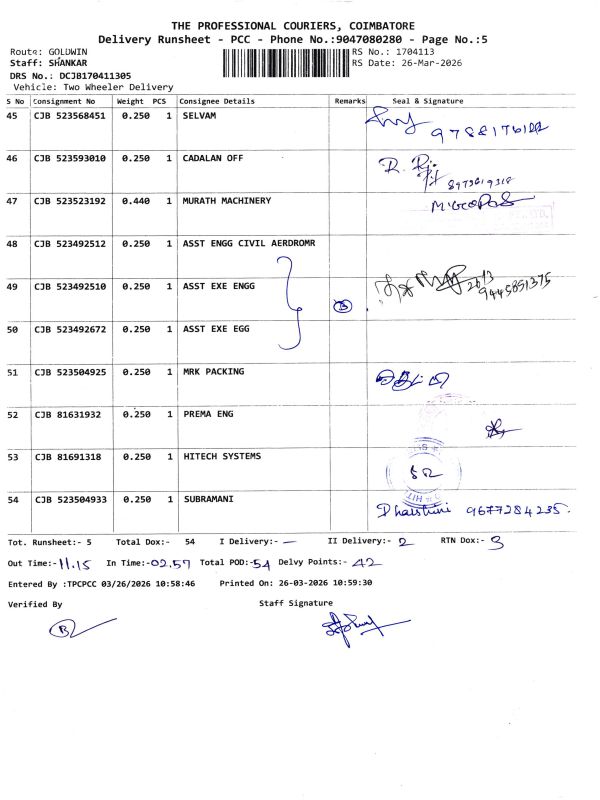 THE PROFESSIONAL COURIERS, COIMBATORE
Delivery Runsheet - PCC - Phone No.:9047080280 - Page No.:5
Route: GOLDWIN RS No.: 1704113
Staff: SHANKAR RS Date: 26-Mar-2026
DRS No.: DCJB170411305
Vehicle: Two Wheeler Delivery
S No Consignment No Weight PCS Consignee Details Remarks Seal & Signature
45 CJB 523568451 0.250 1 SELVAM
46 CJB 523593010 0.250 1 CADALAN OFF
47 CJB 523523192 0.440 1 MURATH MACHINERY
48 CJB 523492512 0.250 1 ASST ENGG CIVIL AERDROMR
49 CJB 523492510 0.250 1 ASST EXE ENGG B 9445851375
50 CJB 523492672 0.250 1 ASST EXE EGG
51 CJB 523504925 0.250 1 MRK PACKING
52 CJB 81631932 0.250 1 PREMA ENG
53 CJB 81691318 0.250 1 HITECH SYSTEMS
54 CJB 523504933 0.250 1 SUBRAMANI Dharshini 9677284235.
Tot. Runsheet:- 5 Total Dox:- 54 I Delivery:- — II Delivery:- 2 RTN Dox:- 3
Out Time:-11.15 In Time:-02.57 Total POD:-54 Delvy Points:- 42
Entered By :TPCPCC 03/26/2026 10:58:46 Printed On: 26-03-2026 10:59:30
Verified By Staff Signature
B